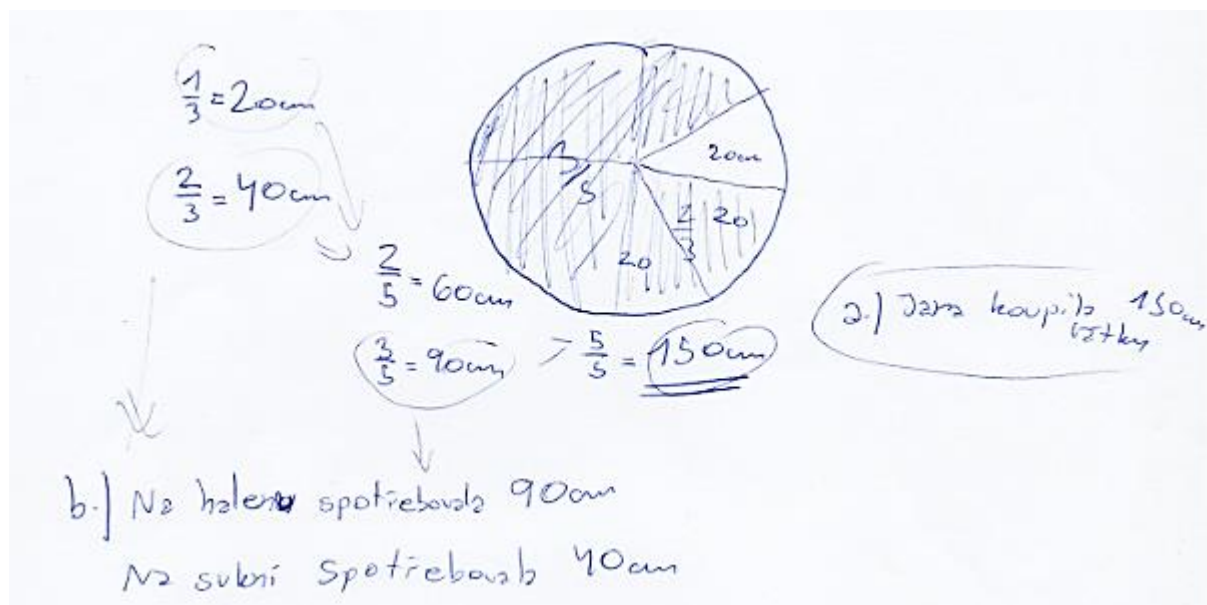 1/3 = 20cm
2/3 = 40cm
3/5
20cm
2/3
20
20
2/5 = 60cm
3/5 = 90cm > 5/5 = 150cm
a.) Jana koupila 150cm
látky
b.) Na halenu spotřebovala 90cm
Na sukni spotřebovala 40cm